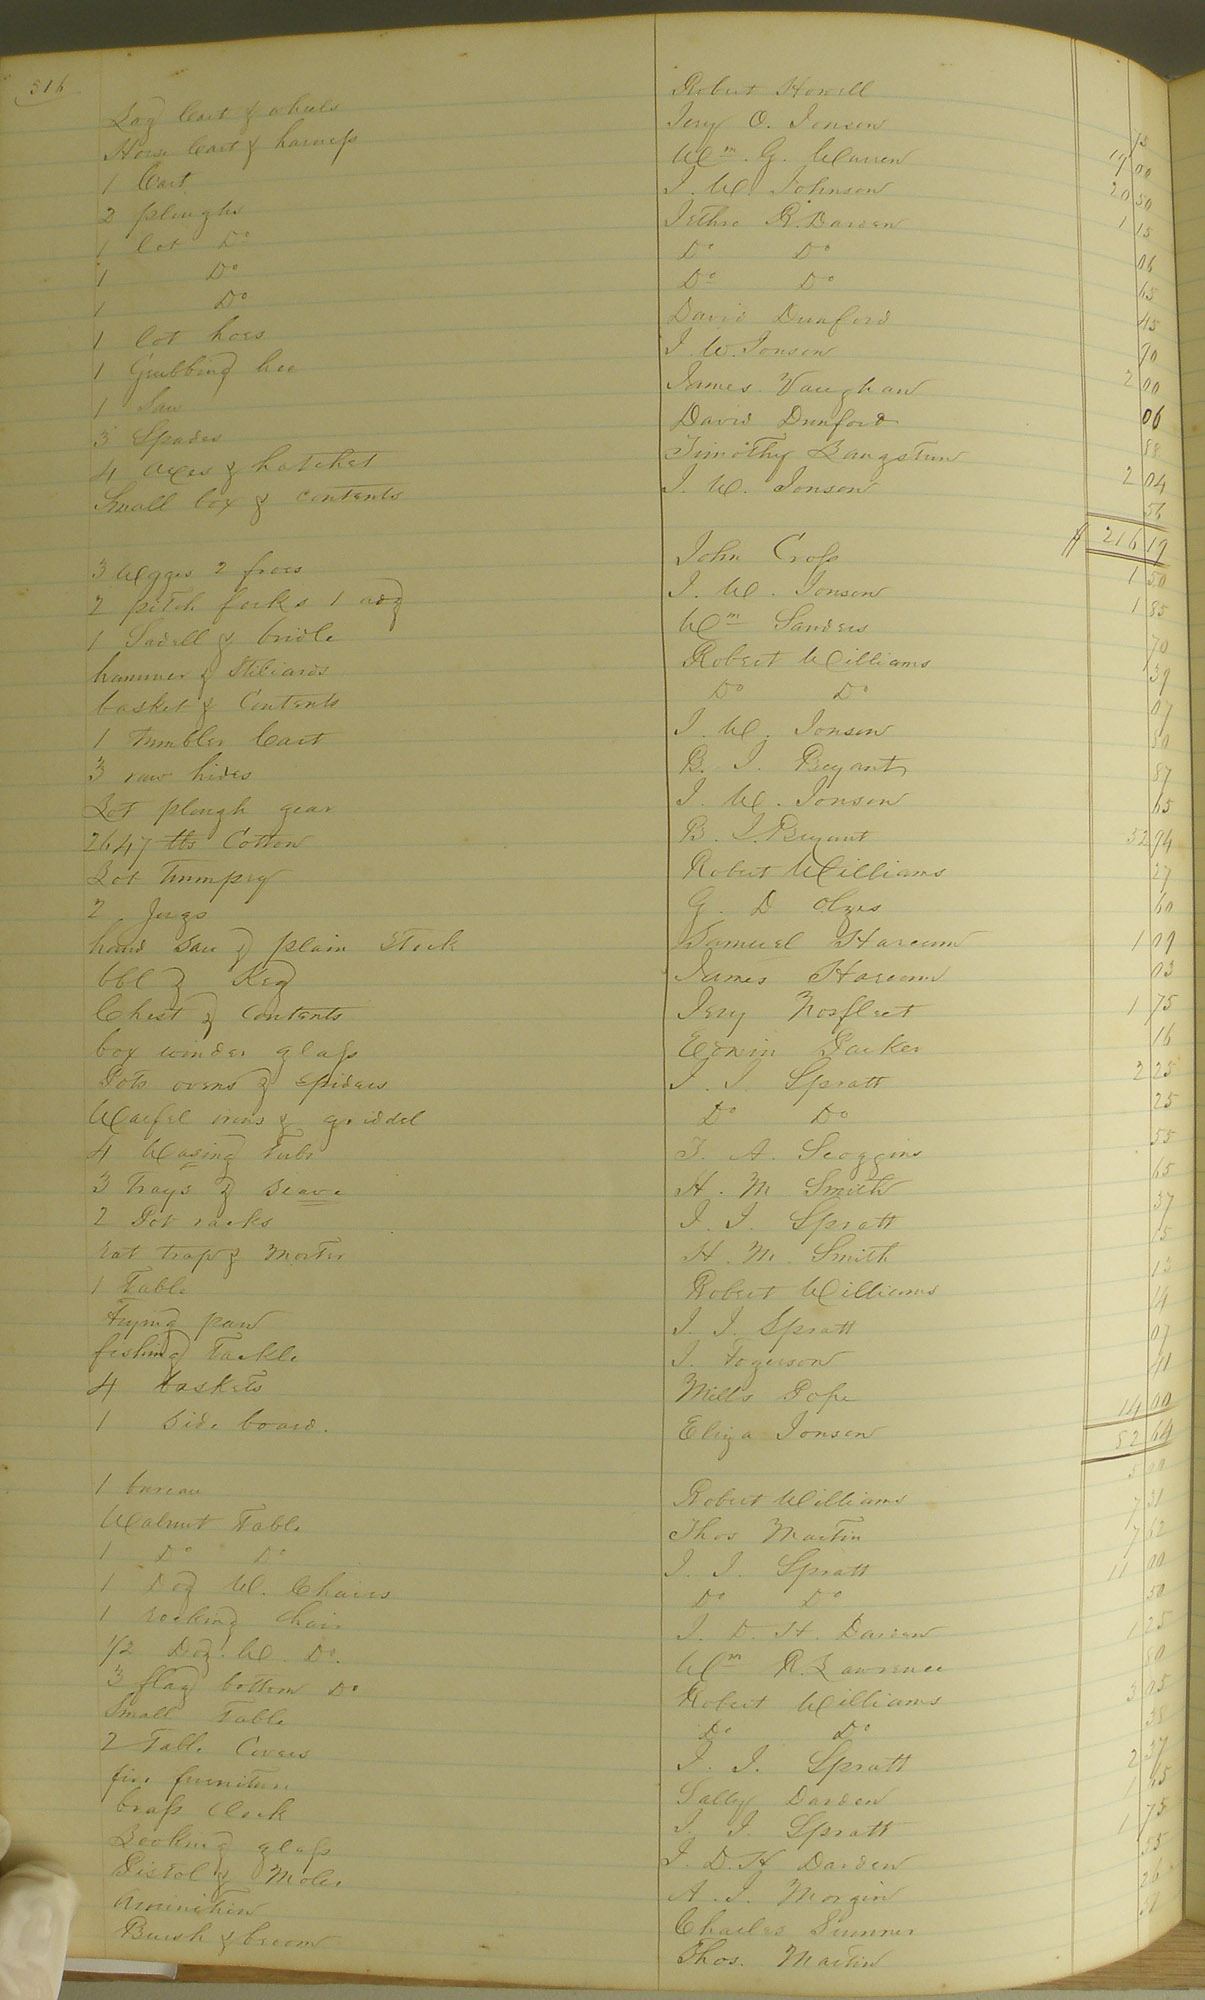 516
Log Cart & wheels Robert Howell 15
Horse Cart & harness Jery O. Jonson 19 00
1 Cart Wm. G. Warren 20 50
2 ploughs J. W. Johnson 1 15
1 lot Do Jethro R. Darden 06
1 Do Do Do 65
1 Do Do Do 45
1 lot hoes David Dunford 90
1 Grubbing hoe J. W. Jonson 2 00
1 Saw James Vaughan 06
3 Spades David Dunford 88
4 axes & hatchet Timothy Bangstun 2 04
Small box & contents J. W. Jonson 56
216 19
3 Wegges 2 froes John Cross 1 50
2 pitch forks 1 adz J. W. Jonson 1 85
1 Sadell & bridle Wm Sanders 70
hammer & Stiliards Robert Williams 39
basket & Contents Do Do 07
1 Tumbler Cart J. W. Jonson 50
3 raw hides B. J. Bryant 87
Lot plough gear J. W. Jonson 65
2647 lbs Cotton B. J. Bryant 52 94
Lot Trumpery Robert Williams 27
2 Jugs G. D 60
hand saw & plain Stock Samuel Harcum 1 09
bbl & Keg James Harcum 03
Chest & Contents Jery Norfleet 1 75
box winder glass Edwin Parker 16
Pots ovens & Spiders J. J. Spratt 2 25
Waifel irons & griddel Do Do 25
4 Wasing Tubs T. A. Scoggins 55
3 Trays & Seave H. M Smith 65
2 Pot racks J. J. Spratt 37
rat trap & Morter H. M. Smith 15
1 Table Robert Williams 12
Frying pan J. J. Spratt 14
fishing Tackle J. Fogerson 07
4 baskets Mills Pope 41
1 Side board. Eliza Jonson 14 00
52 64
1 bureau Robert Williams 5 00
Walnut Table Thos Martin 7 31
1 Do Do J. J. Spratt 7 62
1 Doz W. Chairs Do Do 11 00
1 rocking chair J. D. H. Darden 50
1/2 Doz. W. Do. Wm R. Lawrence 1 25
3 flag bottom Do Robert Williams 80
Small Table Do Do 3 05
2 Table Covers J. J. Spratt 38
fire furniture Sally Darden 2 37
brass Clock J. J. Spratt 1
Looking glass J. D. H Darden 1 75
Pistol & Moler A. J. Morgin 55
Aminition Charles Sumner 26
Brush & broom Thos. Martin